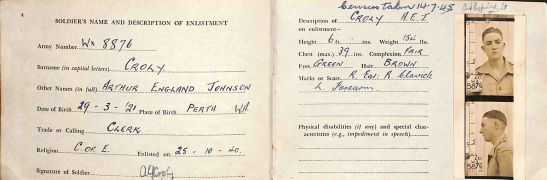 4
SOLDIER'S NAME AND DESCRIPTION OF ENLISTMENT
Army Number WX 8876
Surname (in capital letters) CROLY
Other Names (in full) ARTHUR ENGLAND JOHNSON
Date of Birth 29-3-'21 Place of Birth PERTH WA
Trade or Calling CLERK
Religion C. OF E. Enlisted on 25-10-40.
Signature of Soldier
Census taken 14-7-45
Description of CROLY A.E.J.
on enlistment—
Height 6 ft. ins. Weight 154 lbs.
Chest (max.) 39 ins. Complexion FAIR
Eyes GREEN Hair BROWN
Marks or Scars R. Ear. R Clavicle
L Forearm.
Physical disabilities (if any) and special char-
acteristics (e.g., impediment in speech)